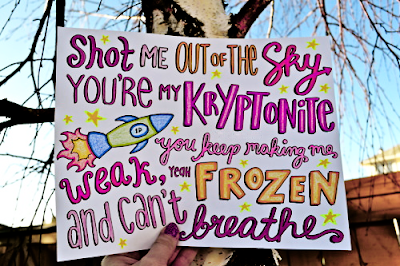 Shot ME OUT OF THE Sky
YOU'RE MY KRYPTONITE
1D
you keep making me
weak, YEAH FROZEN
and can't breathe